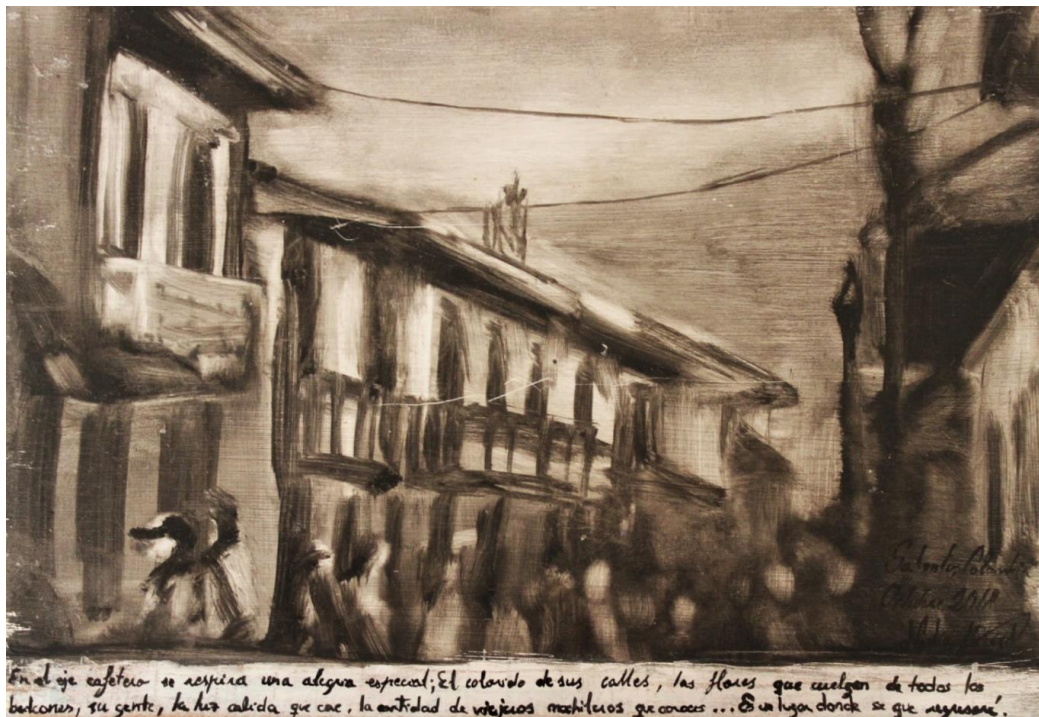 Salento, Colombia
Octubre 2018
En el eje cafetero se respira una alegria especial; El colorido de sus calles, las flores que cuelgan de todos los
balcones, su gente, la luz calida que cae, la cantidad de viajeros mochileros que conoces... Es un lugar donde se que regresaré.